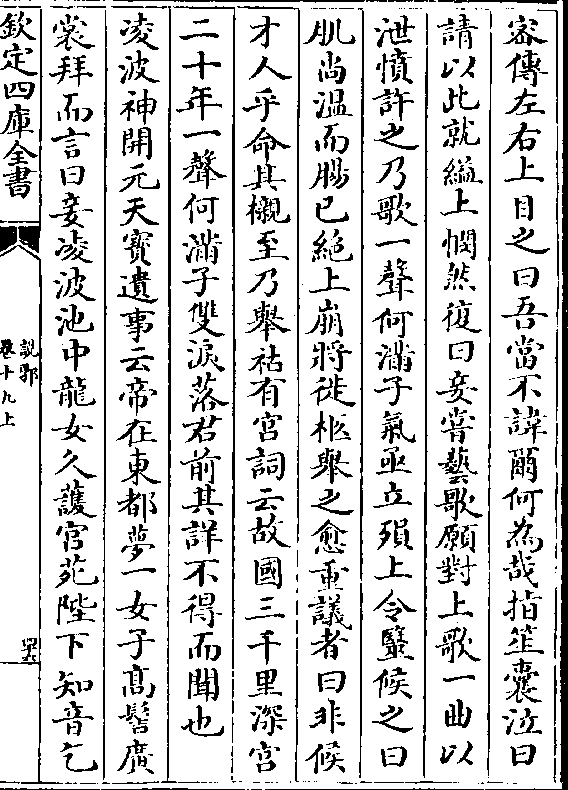 密傳左右上目之曰吾當不諱爾何為哉指笙囊泣曰
請以此就縊上憫然復曰妾嘗藝歌願對上歌一曲以
泄憤許之乃歌一聲何滿子氣亟立殞上令醫候之曰
肌尚溫而腸已絕上崩將徙柩舉之愈重議者曰非候
才人乎命其櫬至乃舉祜有宮詞云故國三千里深宮
二十年一聲何滿子雙淚落君前其詳不得而聞也
凌波神開元天寶遺事云帝在東都夢一女子髙髻廣
裳拜而言曰妾凌波池中龍女久護宮苑陛下知音乞
欽定四庫全書
說郛
卷十九上